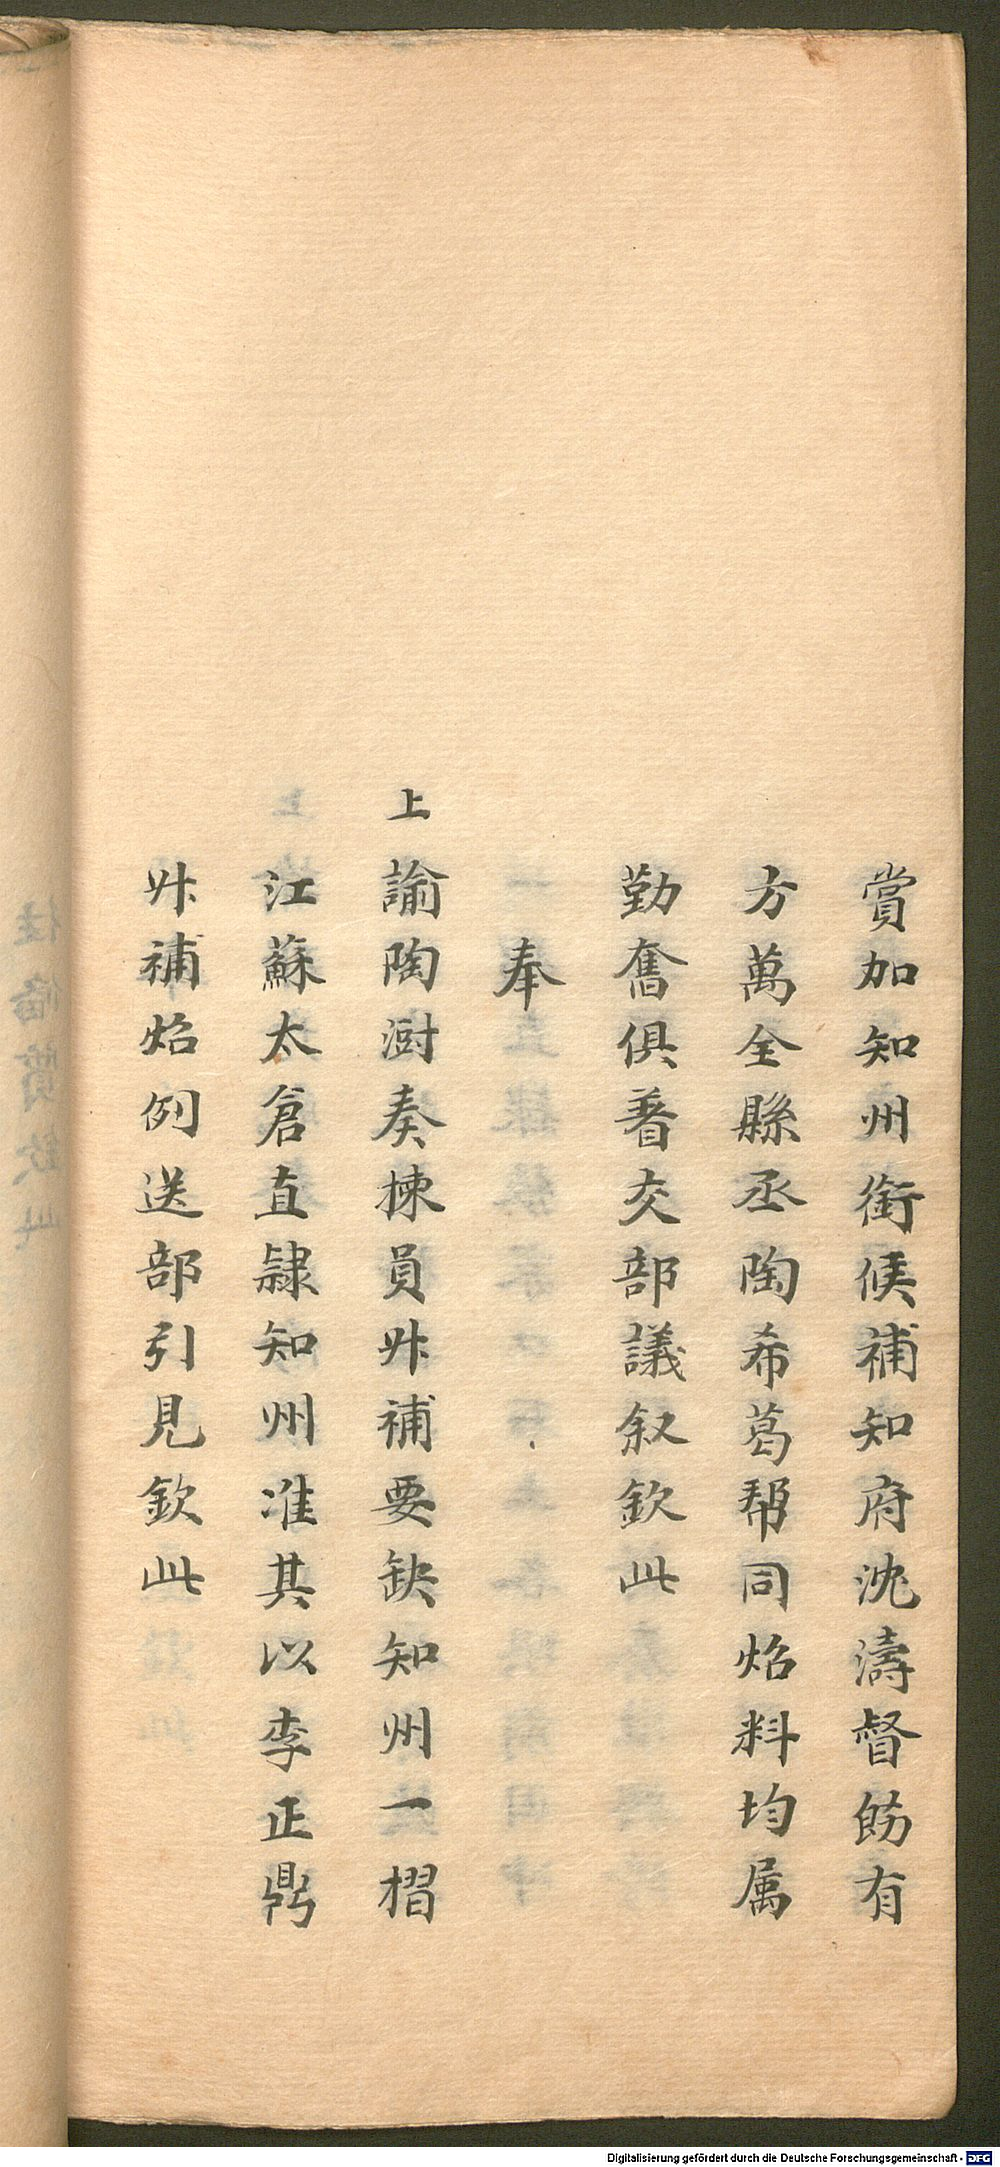 賞加知州銜候補知府沈濤督飭有
方萬全縣丞陶希葛帮同炤料均属
勤奮俱著交部議叙欽此
奉
上諭陶澍奏揀員升補要缺知州一摺
江蘇太倉直隷知州准其以李正鼎
升補炤例送部引見欽此
Digitalisierung gefördert durch die Deutsche Forschungsgemeinschaft - DFG